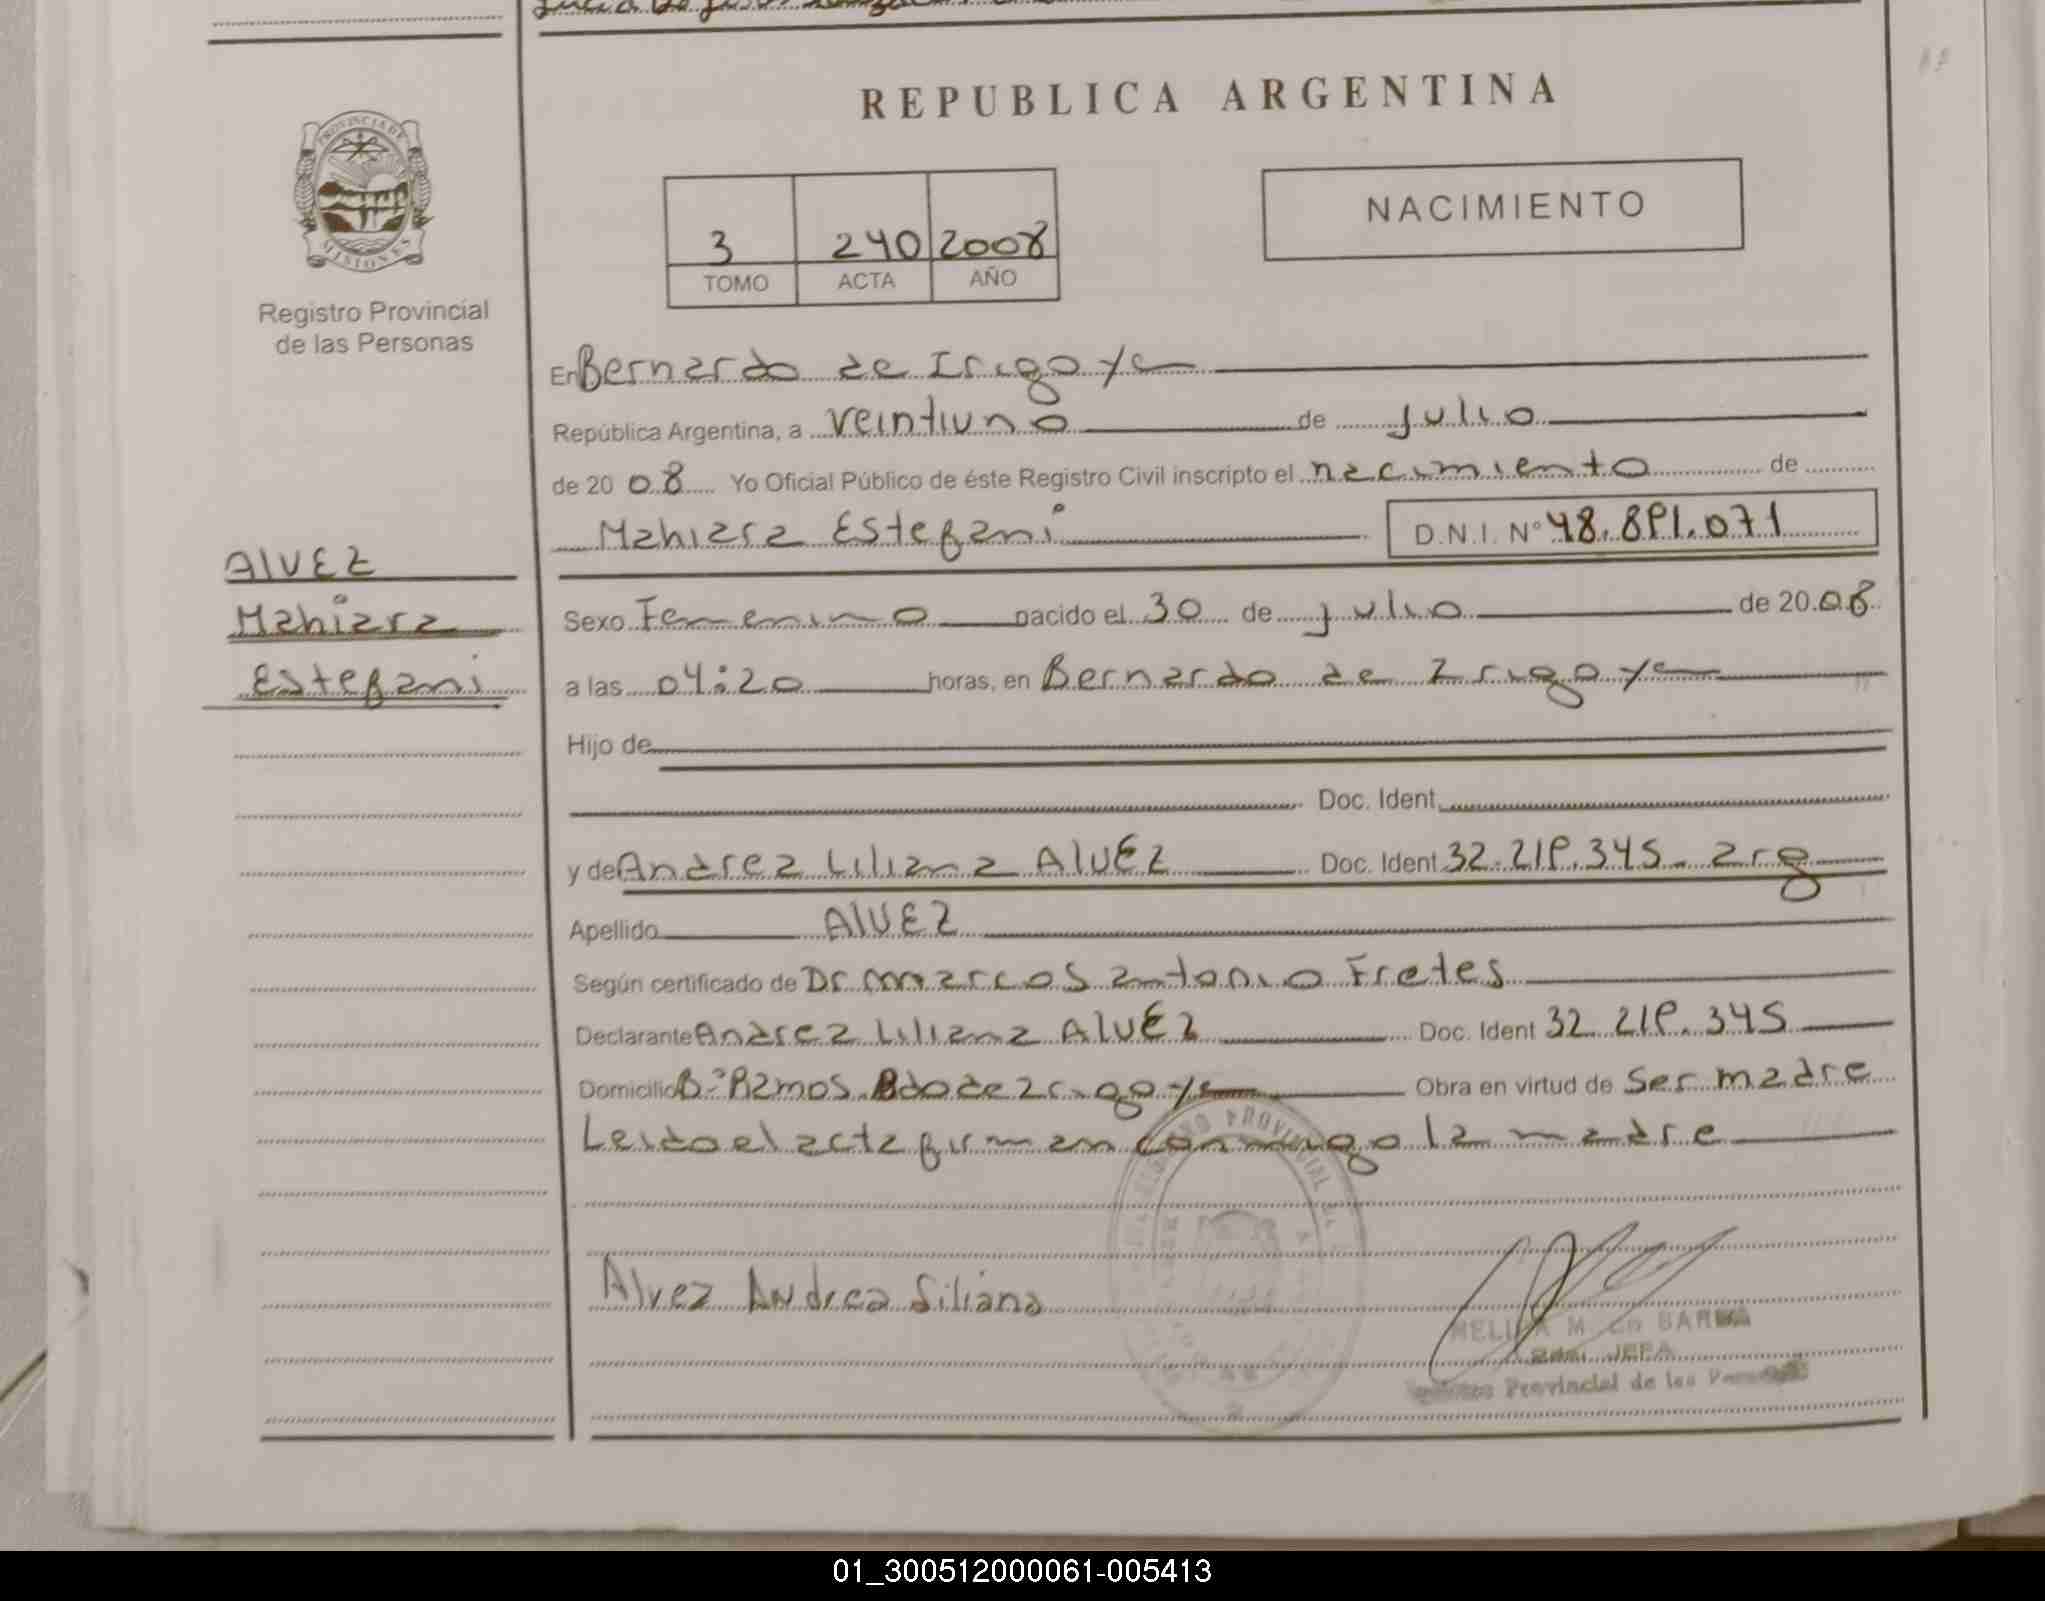 REPUBLICA ARGENTINA
PROVINCIA DE
MISIONES
Registro Provincial
de las Personas
NACIMIENTO
3 240 2008
TOMO ACTA AÑO
En Bernardo de Irigoyen
República Argentina, a veintiuno de julio
de 20 08 Yo Oficial Público de éste Registro Civil inscripto el nacimiento de
Mahiara Estefani D.N.I. N° 48.891.071
ALVEZ
Mahiara
Estefani
Sexo Femenino nacido el 30 de julio de 20 08
a las 04:20 horas, en Bernardo de Irigoyen
Hijo de
Doc. Ident.
y de Andrea Liliana ALVEZ Doc. Ident. 32.219.345- arg
Apellido ALVEZ
Según certificado de Dr marcos antonio Fretes
Declarante Andrea Liliana ALVEZ Doc. Ident 32 219.345
Domicilio B° Ramos Bdo de Irigoyen Obra en virtud de Ser madre
Leido el acta firman conmigo la madre
Alvez Andrea Siliana
M. BARBA
JEFA
Provincial de las
01_300512000061-005413